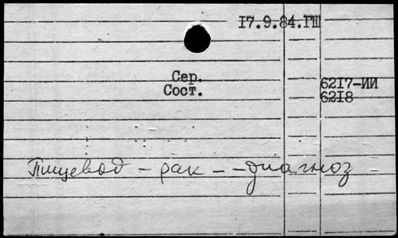 17.9.84.ГПІ
Сер.
Сост.
6217-ИИ
6218
Пищевод - рак - - диагноз